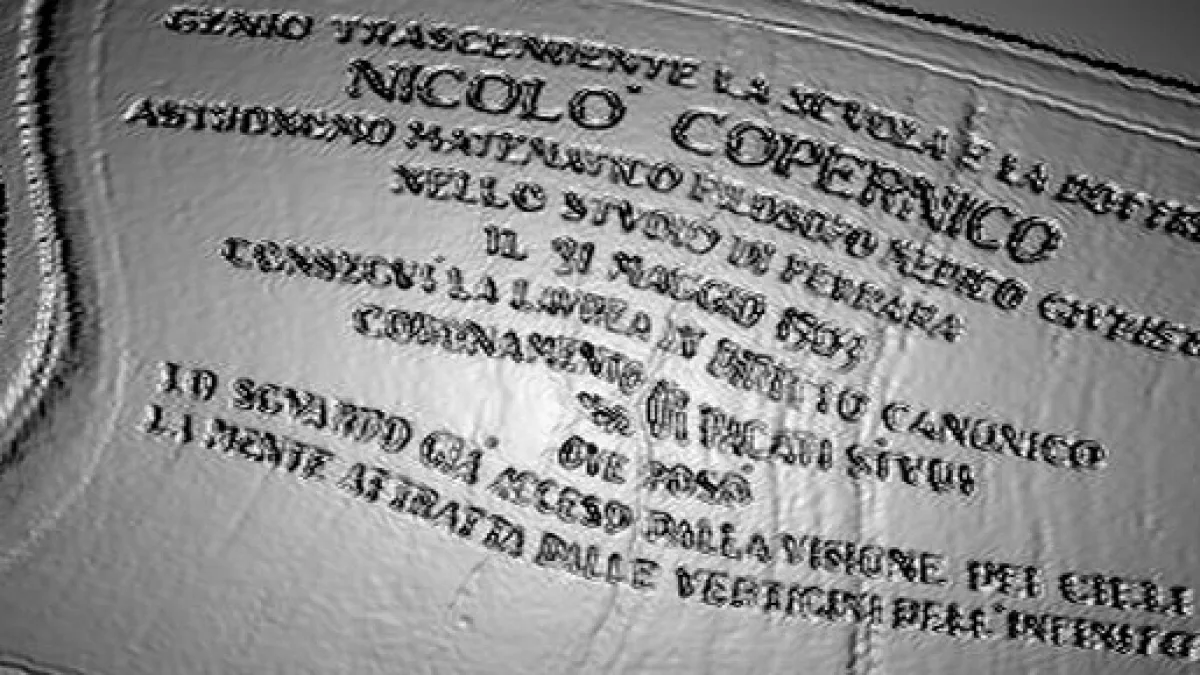 GENIO TRASCENDENTE LA SCVOLA E LA
NICOLO' COPERNICO
ASTRONOMO MATEMATICO FILOSOFO MEDICO
NELLO STVDIO DI FERRARA
IL 31 MAGGIO 1503
CONSEGUÌ LA LAVREA IN DIRITTO CANONICO
CORONAMENTO DI STVDI
OVE POSÒ
LO SGVARDO GIÀ ACCESO DALLA VISIONE DEI CIELI
LA MENTE ATTRATTA DALLE VERTIGINI DELL'INFINITO